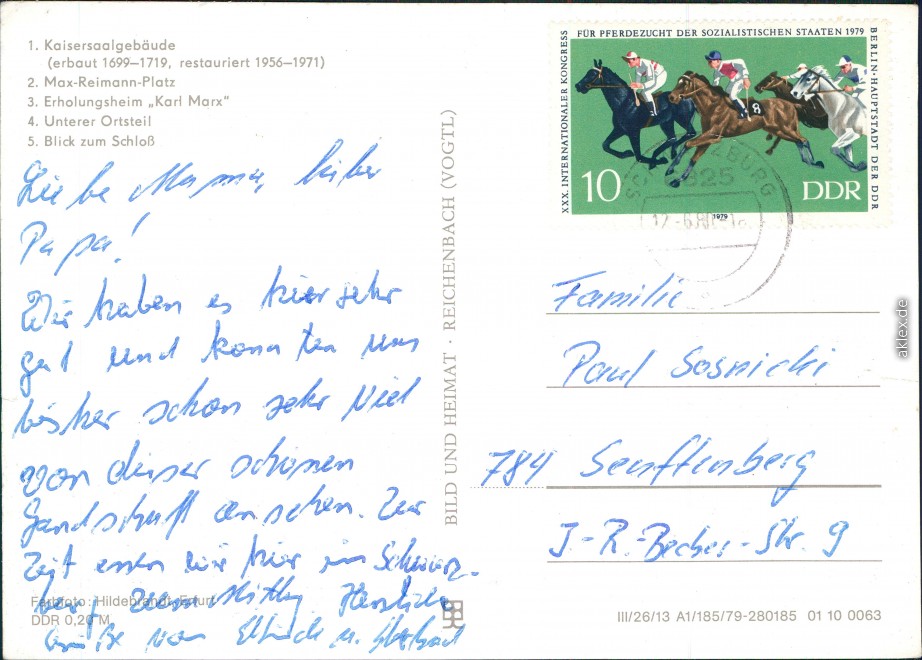 1. Kaisersaalgebäude
(erbaut 1699–1719, restauriert 1956–1971)
2. Max-Reimann-Platz
3. Erholungsheim „Karl Marx"
4. Unterer Ortsteil
5. Blick zum Schloß
Liebe Mama, lieber
Papa!
Wir haben es hier sehr
gut und konnten uns
bisher schon sehr viel
von dieser schönen
Landschaft ansehen. Zur
Zeit essen wir hier in Schwarz-
burg zum Mittag Herzliche
Grüße von u.
Farbfoto: Hildebrandt, Erfurt
DDR 0,20 M
BILD UND HEIMAT · REICHENBACH (VOGTL)
XXX. INTERNATIONALER KONGRESS
FÜR PFERDEZUCHT DER SOZIALISTISCHEN STAATEN 1979
BERLIN·HAUPTSTADT DER DDR
8
10
DDR
1979
Familie
Paul Sosnicki
784 Senftenberg
J.-R.-Becher-Str. 9
III/26/13 A1/185/79-280185 01 10 0063
aklex.de